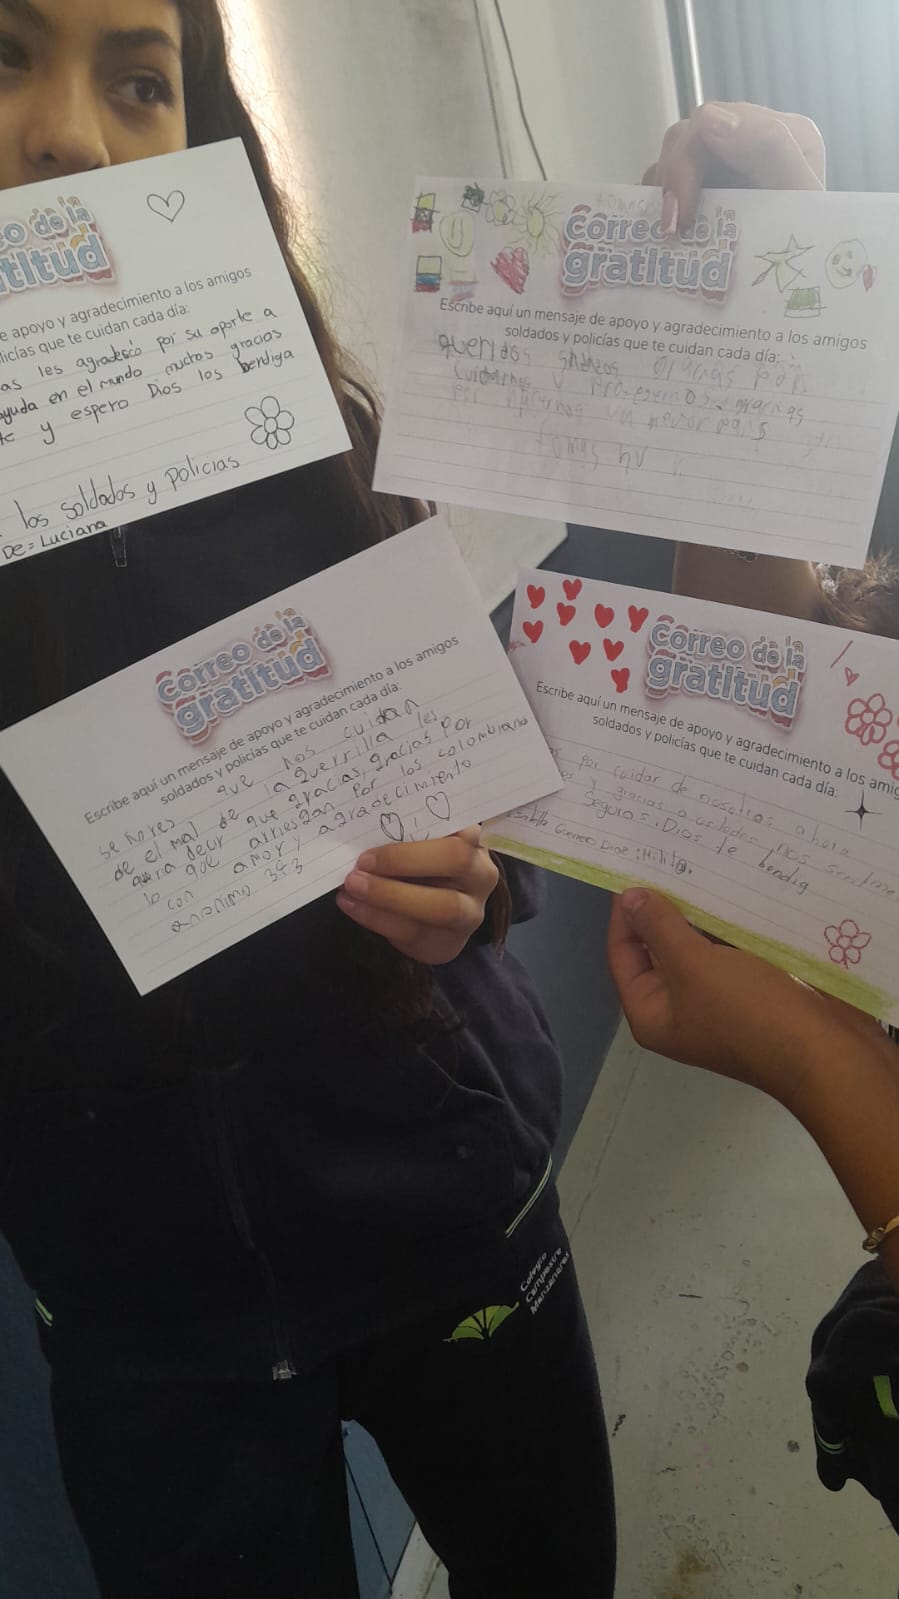 eo de la
titud
e apoyo y agradecimiento a los amigos
licías que te cuidan cada día:
as les agradesco por su aporte a
ayuda en el mundo muchos gracias
te y espero Dios los bendiga
los soldados y policias
De = Luciana
Correo de la
gratitud
Escribe aquí un mensaje de apoyo y agradecimiento a los amigos
soldados y policías que te cuidan cada día:
gracias por
cuidarnos y gracias
por un mejor pais
tomas
Correo de la
gratitud
Escribe aquí un mensaje de apoyo y agradecimiento a los amigos
soldados y policías que te cuidan cada día:
señores que nos cuidan
de el mal de la guerrilla les
que gracias, gracias por
lo que arriesgan por los colombianos
con amor y agradecimiento
anonimo
Correo de la
gratitud
Escribe aquí un mensaje de apoyo y agradecimiento a los amig
soldados y policías que te cuidan cada día:
por cuidar de nosotros ahora
y gracias a ustedes nos
Seguros. Dios te bendig
Colegio
Campestre
Manzanares